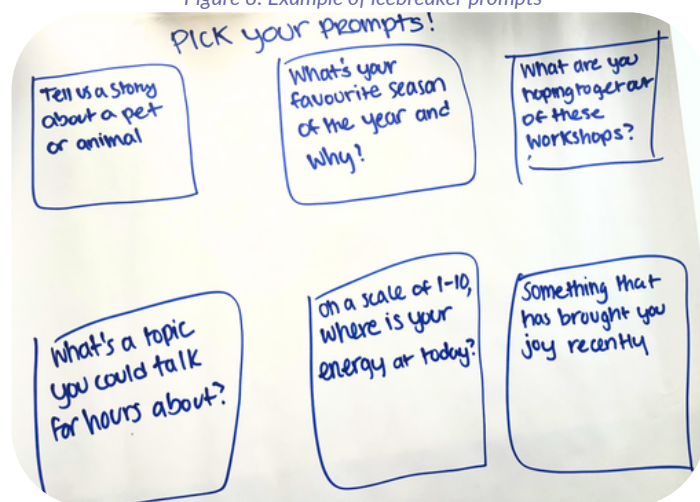 Figure 6: Example of icebreaker prompts
PICK your PROMPTS!
Tell us a Story
about a pet
or animal
What's your
favourite season
of the year and
why?
What are you
hoping to get out
of these
workshops?
What's a topic
you could talk
for hours about?
On a scale of 1-10,
where is your
energy at today?
Something that
has brought you
joy recently